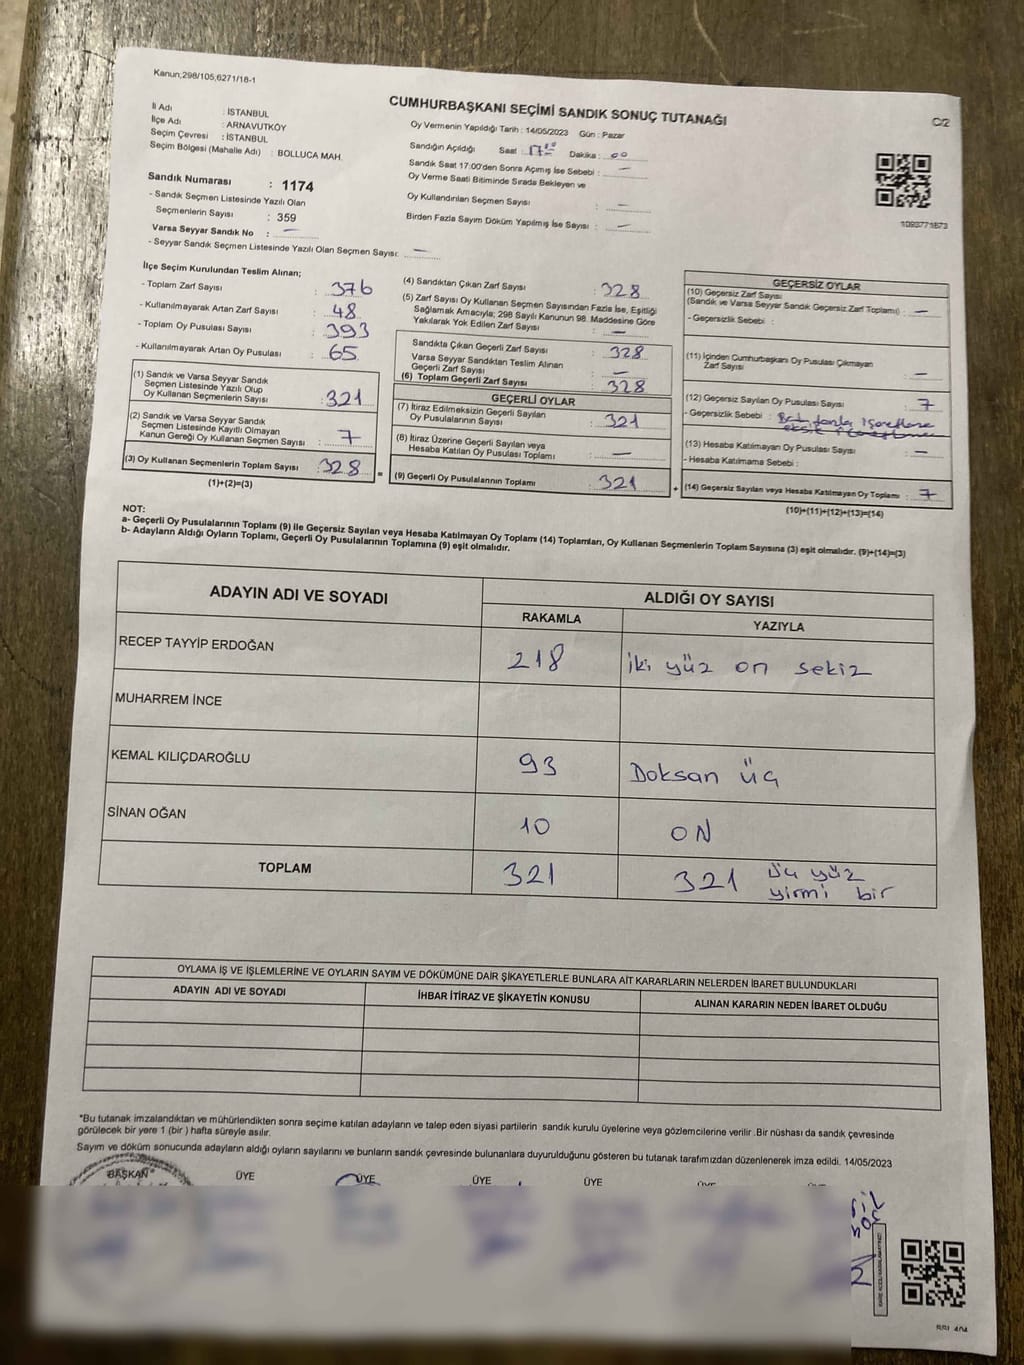 Kanun;298/105,6271/18-1
CUMHURBAŞKANI SEÇİMİ SANDIK SONUÇ TUTANAĞI
C/2
İl Adı : İSTANBUL
İlçe Adı : ARNAVUTKÖY
Seçim Çevresi : İSTANBUL
Seçim Bölgesi (Mahalle Adı) : BOLLUCA MAH.
Oy Vermenin Yapıldığı Tarih : 14/05/2023 Gün : Pazar
Sandığın Açıldığı Saat : 17:00 Dakika : 00
Sandık Saat 17.00'den Sonra Açılmış İse Sebebi : —
Oy Verme Saati Bitiminde Sırada Bekleyen ve
Oy Kullandırılan Seçmen Sayısı : —
Birden Fazla Sayım Döküm Yapılmış İse Sayısı : —
1093771673
Sandık Numarası : 1174
- Sandık Seçmen Listesinde Yazılı Olan
Seçmenlerin Sayısı : 359
Varsa Seyyar Sandık No : —
- Seyyar Sandık Seçmen Listesinde Yazılı Olan Seçmen Sayısı: —
İlçe Seçim Kurulundan Teslim Alınan;
- Toplam Zarf Sayısı : 376
- Kullanılmayarak Artan Zarf Sayısı : 48
- Toplam Oy Pusulası Sayısı : 393
- Kullanılmayarak Artan Oy Pusulası : 65
(1) Sandık ve Varsa Seyyar Sandık
Seçmen Listesinde Yazılı Olup
Oy Kullanan Seçmenlerin Sayısı : 321
(2) Sandık ve Varsa Seyyar Sandık
Seçmen Listesinde Kayıtlı Olmayan
Kanun Gereği Oy Kullanan Seçmen Sayısı : 7
(3) Oy Kullanan Seçmenlerin Toplam Sayısı : 328
(1)+(2)=(3)
=
(4) Sandıktan Çıkan Zarf Sayısı : 328
(5) Zarf Sayısı Oy Kullanan Seçmen Sayısından Fazla İse, Eşitliği
Sağlamak Amacıyla; 298 Sayılı Kanunun 98. Maddesine Göre
Yakılarak Yok Edilen Zarf Sayısı : —
Sandıkta Çıkan Geçerli Zarf Sayısı : 328
Varsa Seyyar Sandıktan Teslim Alınan
Geçerli Zarf Sayısı : —
(6) Toplam Geçerli Zarf Sayısı : 328
GEÇERLİ OYLAR
(7) İtiraz Edilmeksizin Geçerli Sayılan
Oy Pusulalarının Sayısı : 321
(8) İtiraz Üzerine Geçerli Sayılan veya
Hesaba Katılan Oy Pusulası Toplamı : —
(9) Geçerli Oy Pusulalarının Toplamı : 321
+
GEÇERSİZ OYLAR
(10) Geçersiz Zarf Sayısı
(Sandık ve Varsa Seyyar Sandık Geçersiz Zarf Toplamı) : —
- Geçersizlik Sebebi :
(11) İçinden Cumhurbaşkanı Oy Pusulası Çıkmayan
Zarf Sayısı : —
(12) Geçersiz Sayılan Oy Pusulası Sayısı : 7
- Geçersizlik Sebebi :
(13) Hesaba Katılmayan Oy Pusulası Sayısı : —
- Hesaba Katılmama Sebebi :
(14) Geçersiz Sayılan veya Hesaba Katılmayan Oy Toplamı : 7
(10)+(11)+(12)+(13)=(14)
NOT:
a- Geçerli Oy Pusulalarının Toplamı (9) ile Geçersiz Sayılan veya Hesaba Katılmayan Oy Toplamı (14) Toplamları, Oy Kullanan Seçmenlerin Toplam Sayısına (3) eşit olmalıdır. (9)+(14)=(3)
b- Adayların Aldığı Oyların Toplamı, Geçerli Oy Pusulalarının Toplamına (9) eşit olmalıdır.
ADAYIN ADI VE SOYADI
ALDIĞI OY SAYISI
RAKAMLA YAZIYLA
RECEP TAYYİP ERDOĞAN 218 iki yüz on sekiz
MUHARREM İNCE
KEMAL KILIÇDAROĞLU 93 Doksan üç
SİNAN OĞAN 10 ON
TOPLAM 321 321 üç yüz
yirmi bir
OYLAMA İŞ VE İŞLEMLERİNE VE OYLARIN SAYIM VE DÖKÜMÜNE DAİR ŞİKAYETLERLE BUNLARA AİT KARARLARIN NELERDEN İBARET BULUNDUKLARI
ADAYIN ADI VE SOYADI İHBAR İTİRAZ VE ŞİKAYETİN KONUSU ALINAN KARARIN NEDEN İBARET OLDUĞU
*Bu tutanak imzalandıktan ve mühürlendikten sonra seçime katılan adayların ve talep eden siyasi partilerin sandık kurulu üyelerine veya gözlemcilerine verilir. Bir nüshası da sandık çevresinde
görülecek bir yere 1 (bir) hafta süreyle asılır.
Sayım ve döküm sonucunda adayların aldığı oyların sayılarını ve bunların sandık çevresinde bulunanlara duyurulduğunu gösteren bu tutanak tarafımızdan düzenlenerek imza edildi. 14/05/2023
BAŞKAN ÜYE ÜYE ÜYE ÜYE